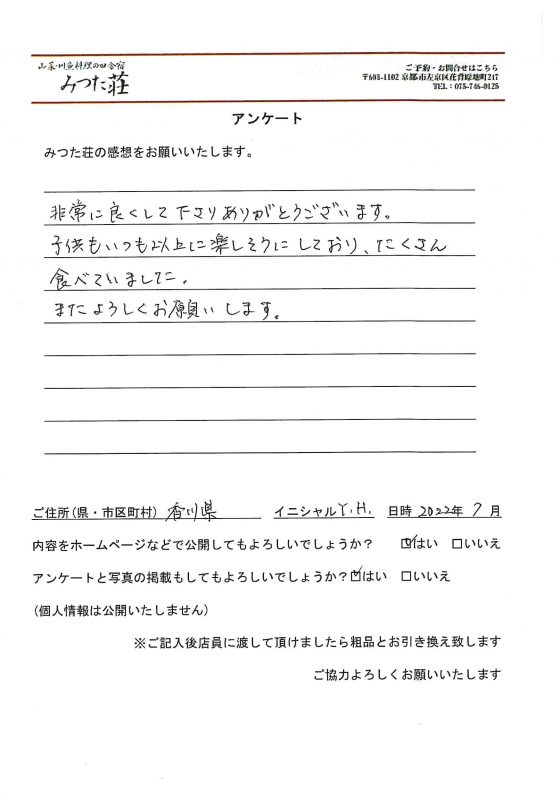 山菜・川魚料理の田舎宿
みつた荘
ご予約・お問合せはこちら
〒601-1102 京都市左京区花背原地町217
TEL：075-746-0125
アンケート
みつた荘の感想をお願いいたします。
非常に良くして下さりありがとうございます。
子供もいつも以上に楽しそうにしており、たくさん
食べていました。
またよろしくお願いします。
ご住所(県・市区町村) 香川県 イニシャル Y.H. 日時 2022年 7月
内容をホームページなどで公開してもよろしいでしょうか？ ☑はい □いいえ
アンケートと写真の掲載もしてもよろしいでしょうか？☑はい □いいえ
(個人情報は公開いたしません)
※ご記入後店員に渡して頂けましたら粗品とお引き換え致します
ご協力よろしくお願いいたします